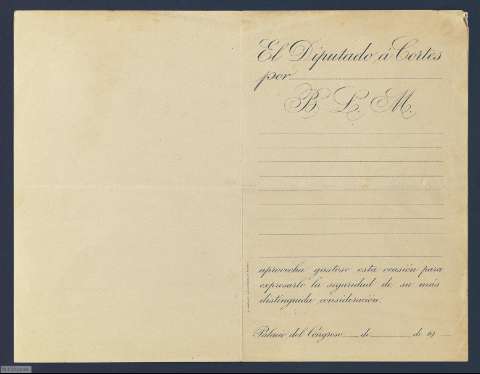 El Diputado á Cortes
por
B L M
aprovecha gustoso esta ocasión para
expresarle la seguridad de su más
distinguida consideración.
Palacio del Congreso de de 19